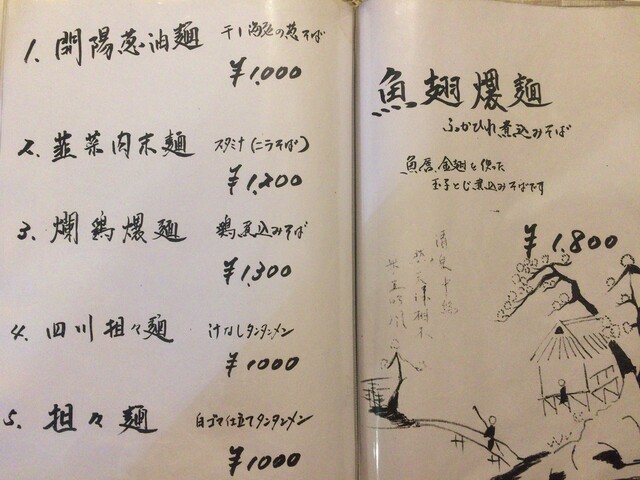 1. 開陽葱油麺 干し海老の葱そば
¥1,000
2. 韮菜肉末麺 スタミナ(ニラそば)
¥1,200
3. 爛鶏煨麺 鶏煮込みそば
¥1,300
4. 四川担々麺 汁なしタンタンメン
¥1000
5. 担々麺 白ゴマ仕立てタンタンメン
¥1000
魚翅煨麺
ふかひれ煮込みそば
魚唇、金翅を使った
玉子とじ煮込みそばです
¥1,800